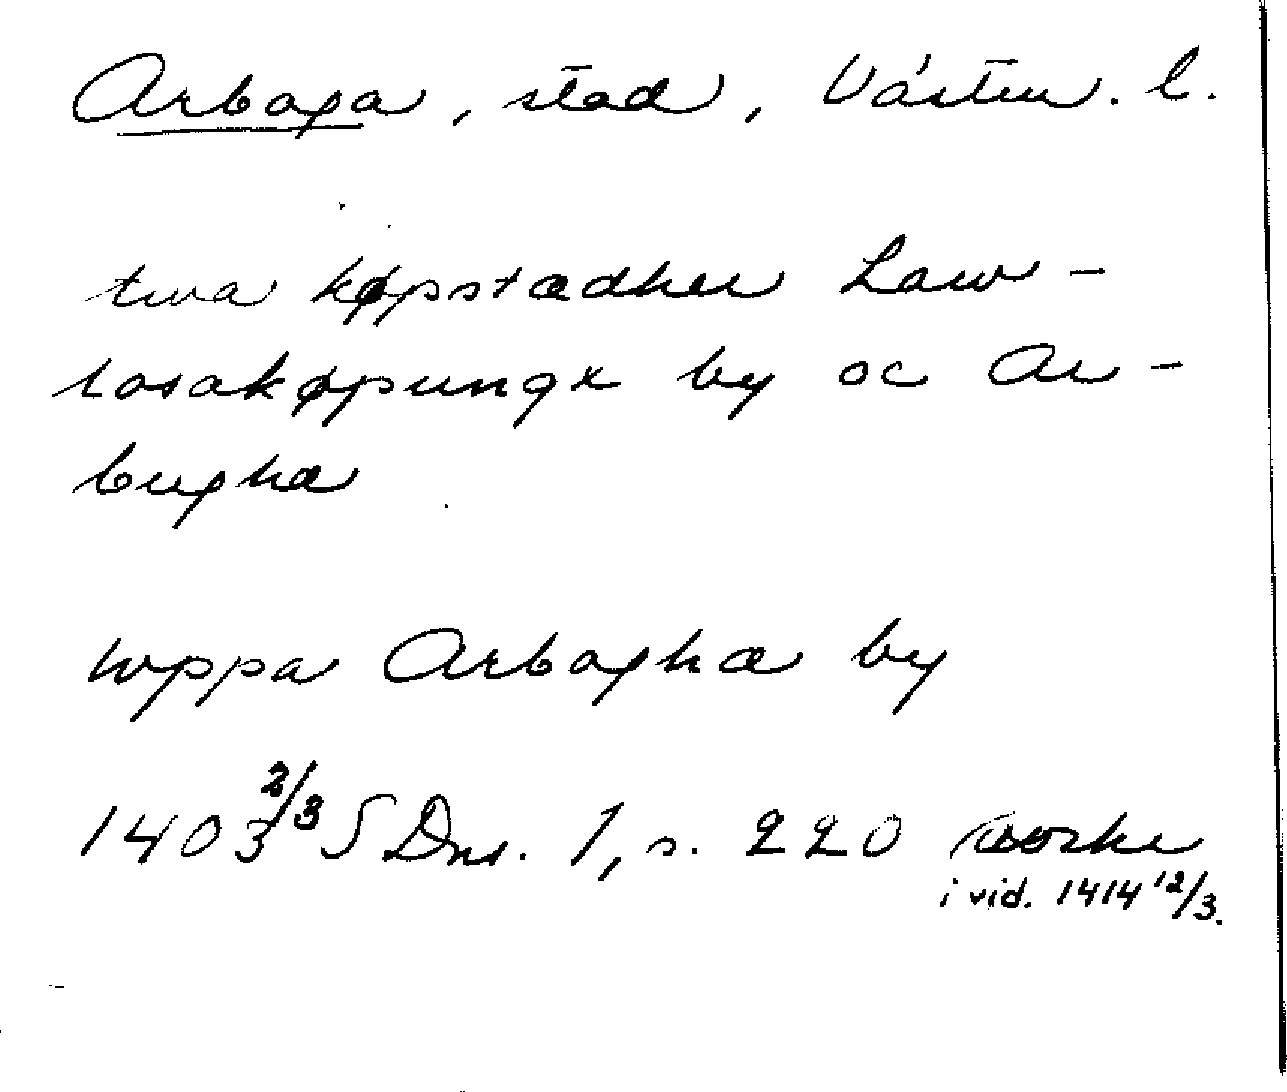 Arboga, stad, Västm. l.
twa køpstædher Law-
losakøpungx by oc Ar-
bughæ
wppa Arboghæ by
1403 2/3 SDns. 1, s. 220
i vid. 1414 12/3.